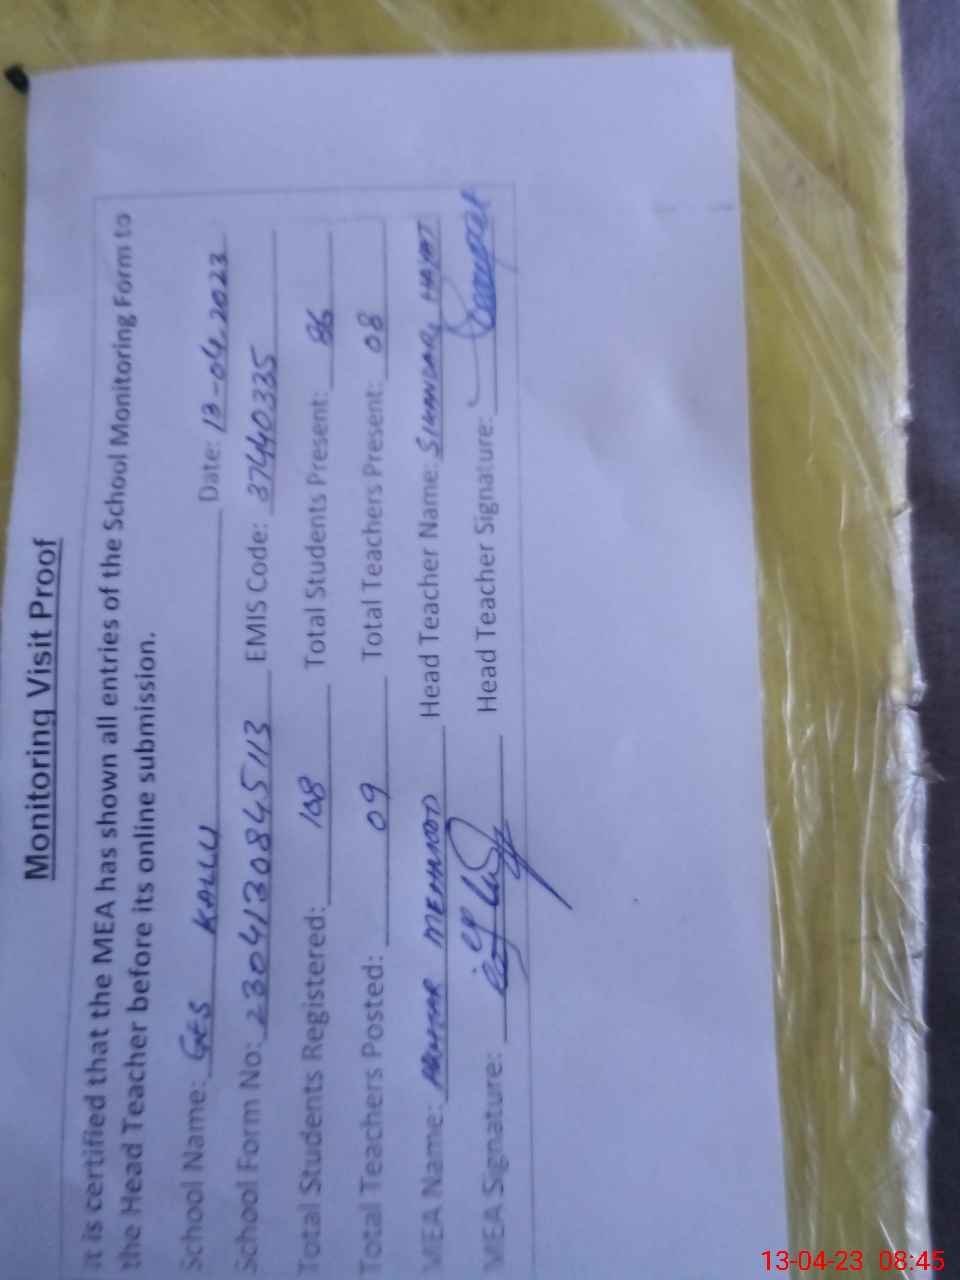 Monitoring Visit Proof
It is certified that the MEA has shown all entries of the School Monitoring Form to
the Head Teacher before its online submission.
School Name: GES KALLU Date: 13-04-2023
School Form No: 2304130845113 EMIS Code: 37440335
Total Students Registered: 108 Total Students Present: 86
Total Teachers Posted: 09 Total Teachers Present: 08
MEA Name: MEHMOOD Head Teacher Name: HAYAT
MEA Signature: Head Teacher Signature:
13-04-23 08:45